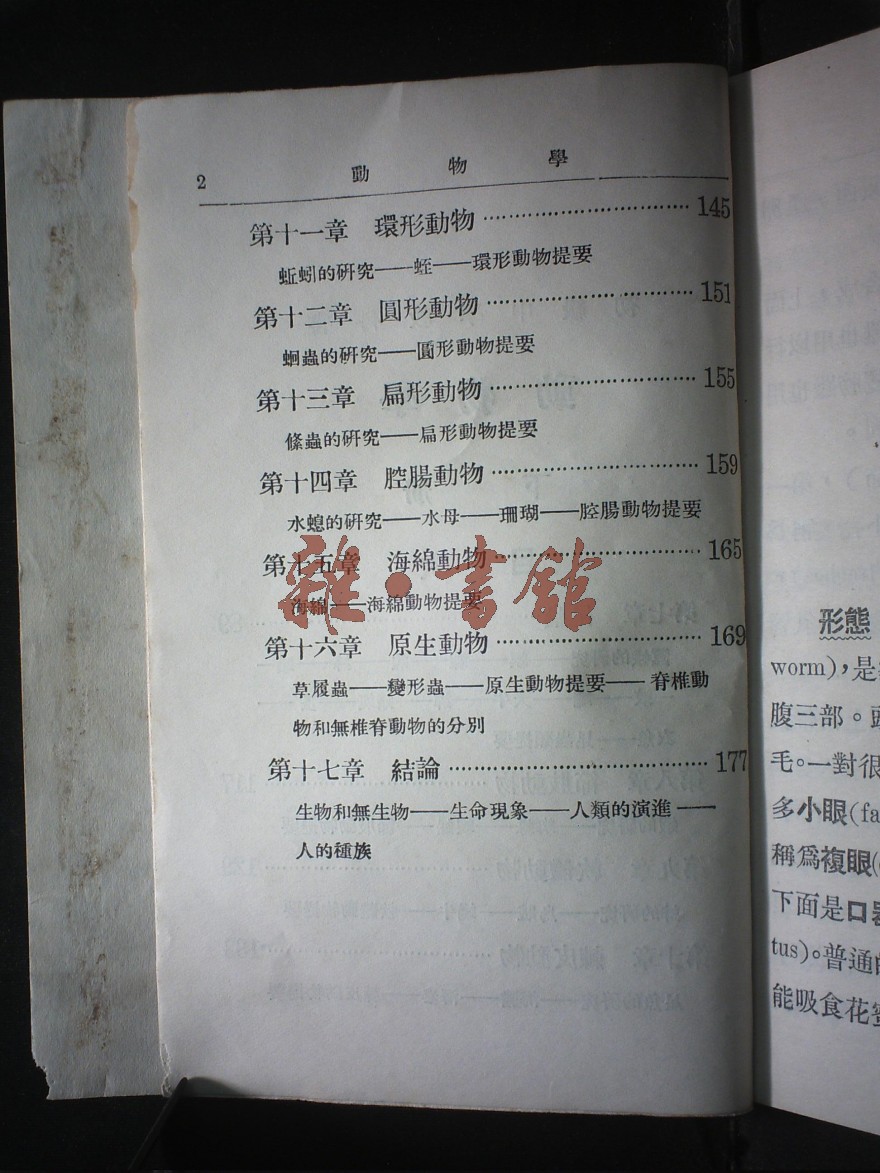 2 動物學
第十一章 環形動物 …………………… 145
蚯蚓的硏究——蛭——環形動物提要
第十二章 圓形動物 …………………… 151
蛔蟲的硏究——圓形動物提要
第十三章 扁形動物 …………………… 155
絛蟲的硏究——扁形動物提要
第十四章 腔腸動物 …………………… 159
水螅的硏究——水母——珊瑚——腔腸動物提要
第十五章 海綿動物 …………………… 165
海綿——海綿動物提要
雜·書館
第十六章 原生動物 …………………… 169
草履蟲——變形蟲——原生動物提要——脊椎動
物和無椎脊動物的分別
第十七章 結論 …………………… 177
生物和無生物——生命現象——人類的演進——
人的種族
形態
worm),是
腹三部。
毛。一對很
多小眼(fa
稱爲複眼(
下面是口
tus)。普通
能吸食花